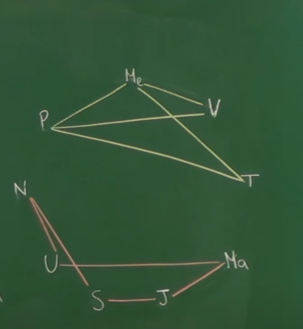 Me
P
V
T
N
U
Ma
S
J